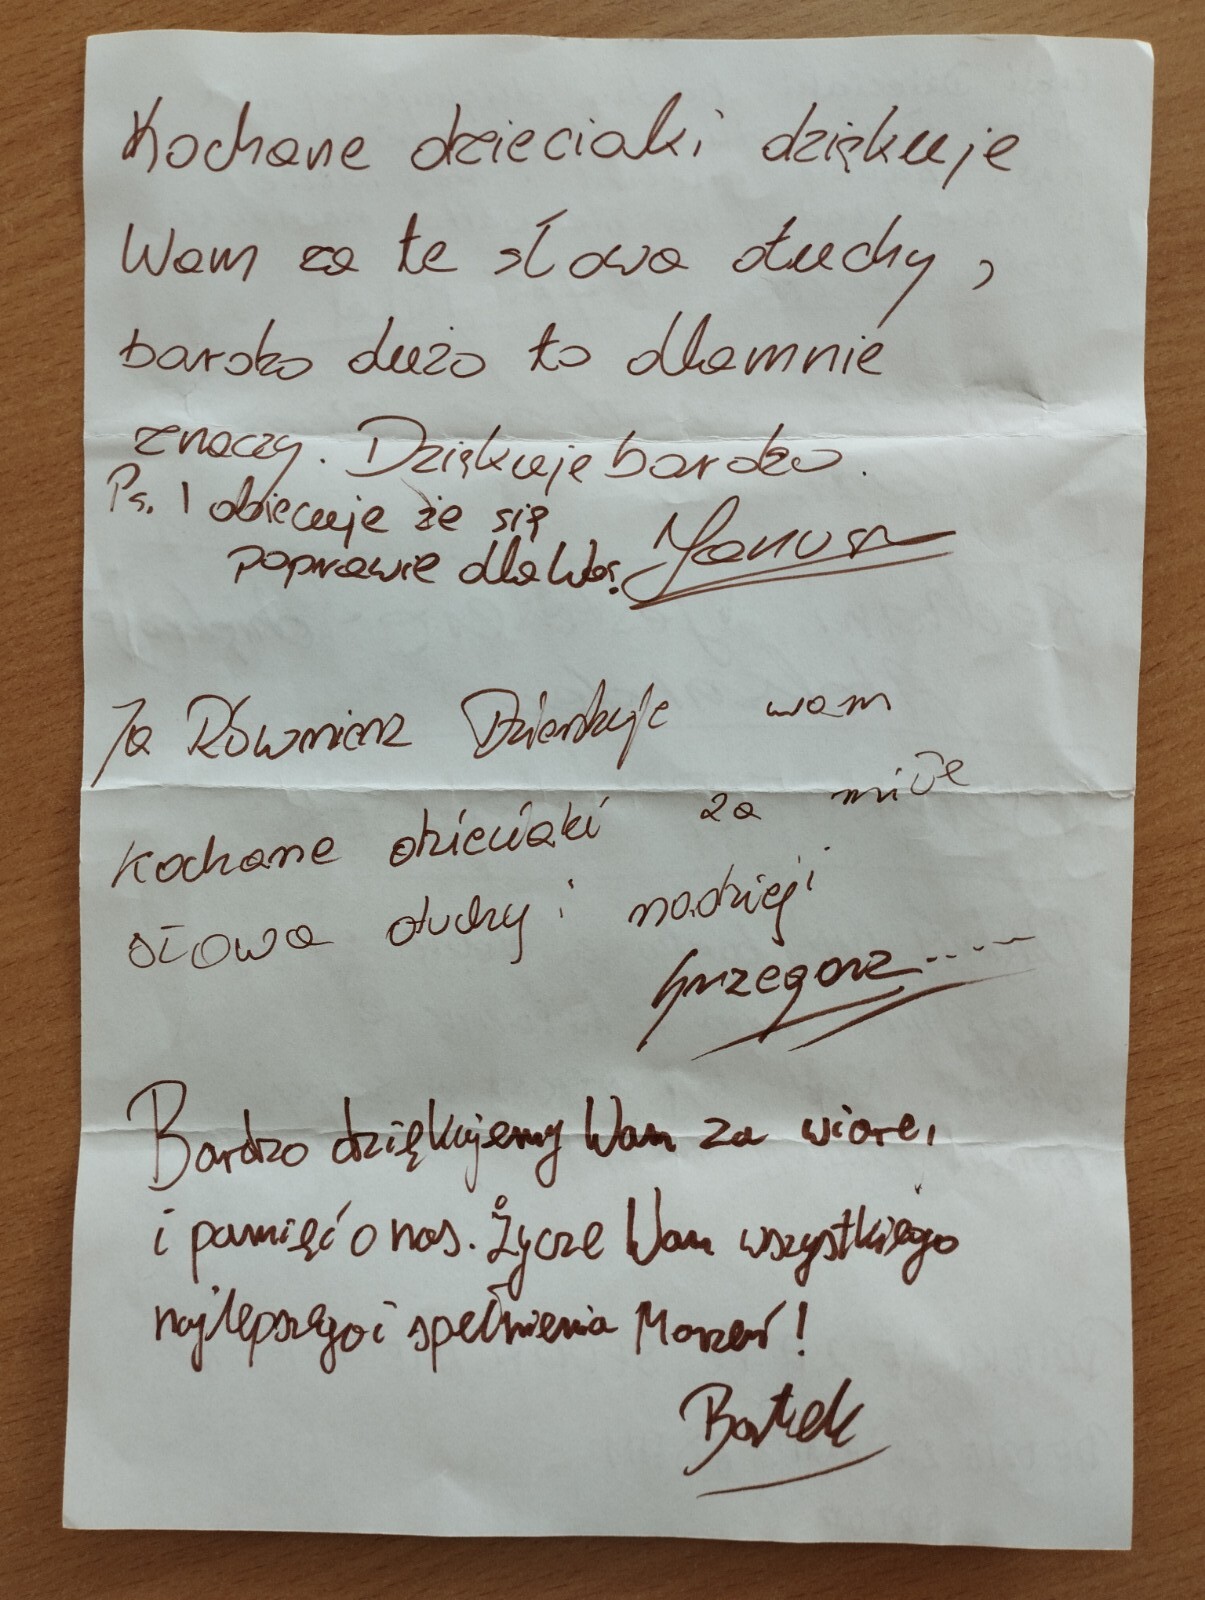 Kochane dzieciaki dziękuje
Wam za te słowa otuchy,
bardzo dużo to dlamnie
znaczy. Dziękuje bardzo.
Ps. I obiecuje że się
poprawie dla Was. Janusz
Ja Równierz Dzienkuje wam
kochane dzieciaki za miłe
słowa otuchy i nadzieji
Grzegorz....--
Bardzo dziękujemy Wam za wiare,
i pamięć o nas. Życze Wam wszystkiego
najlepszego i spełnienia Marzeń!
Bartek